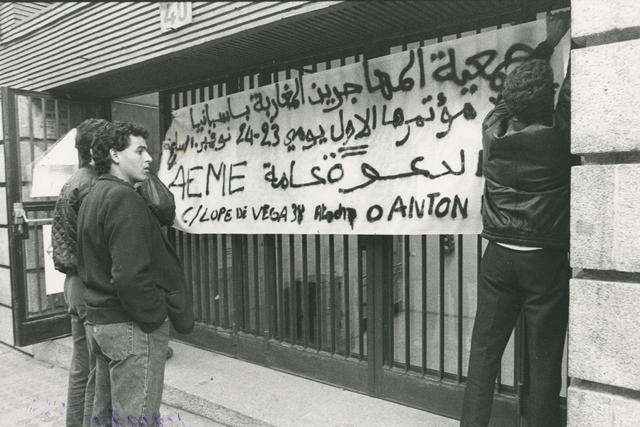 40
جمعية المهاجرين المغاربة باسبانيا
مؤتمرها الاول يومي 23-24 نوفمبر
الدعوة عامة AEME
C/ LOPE DE VEGA 38 ANTON